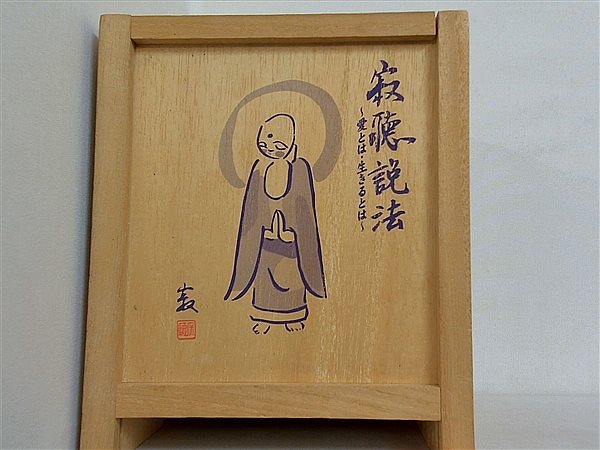 寂聴説法
～愛とは・生きるとは～
寂